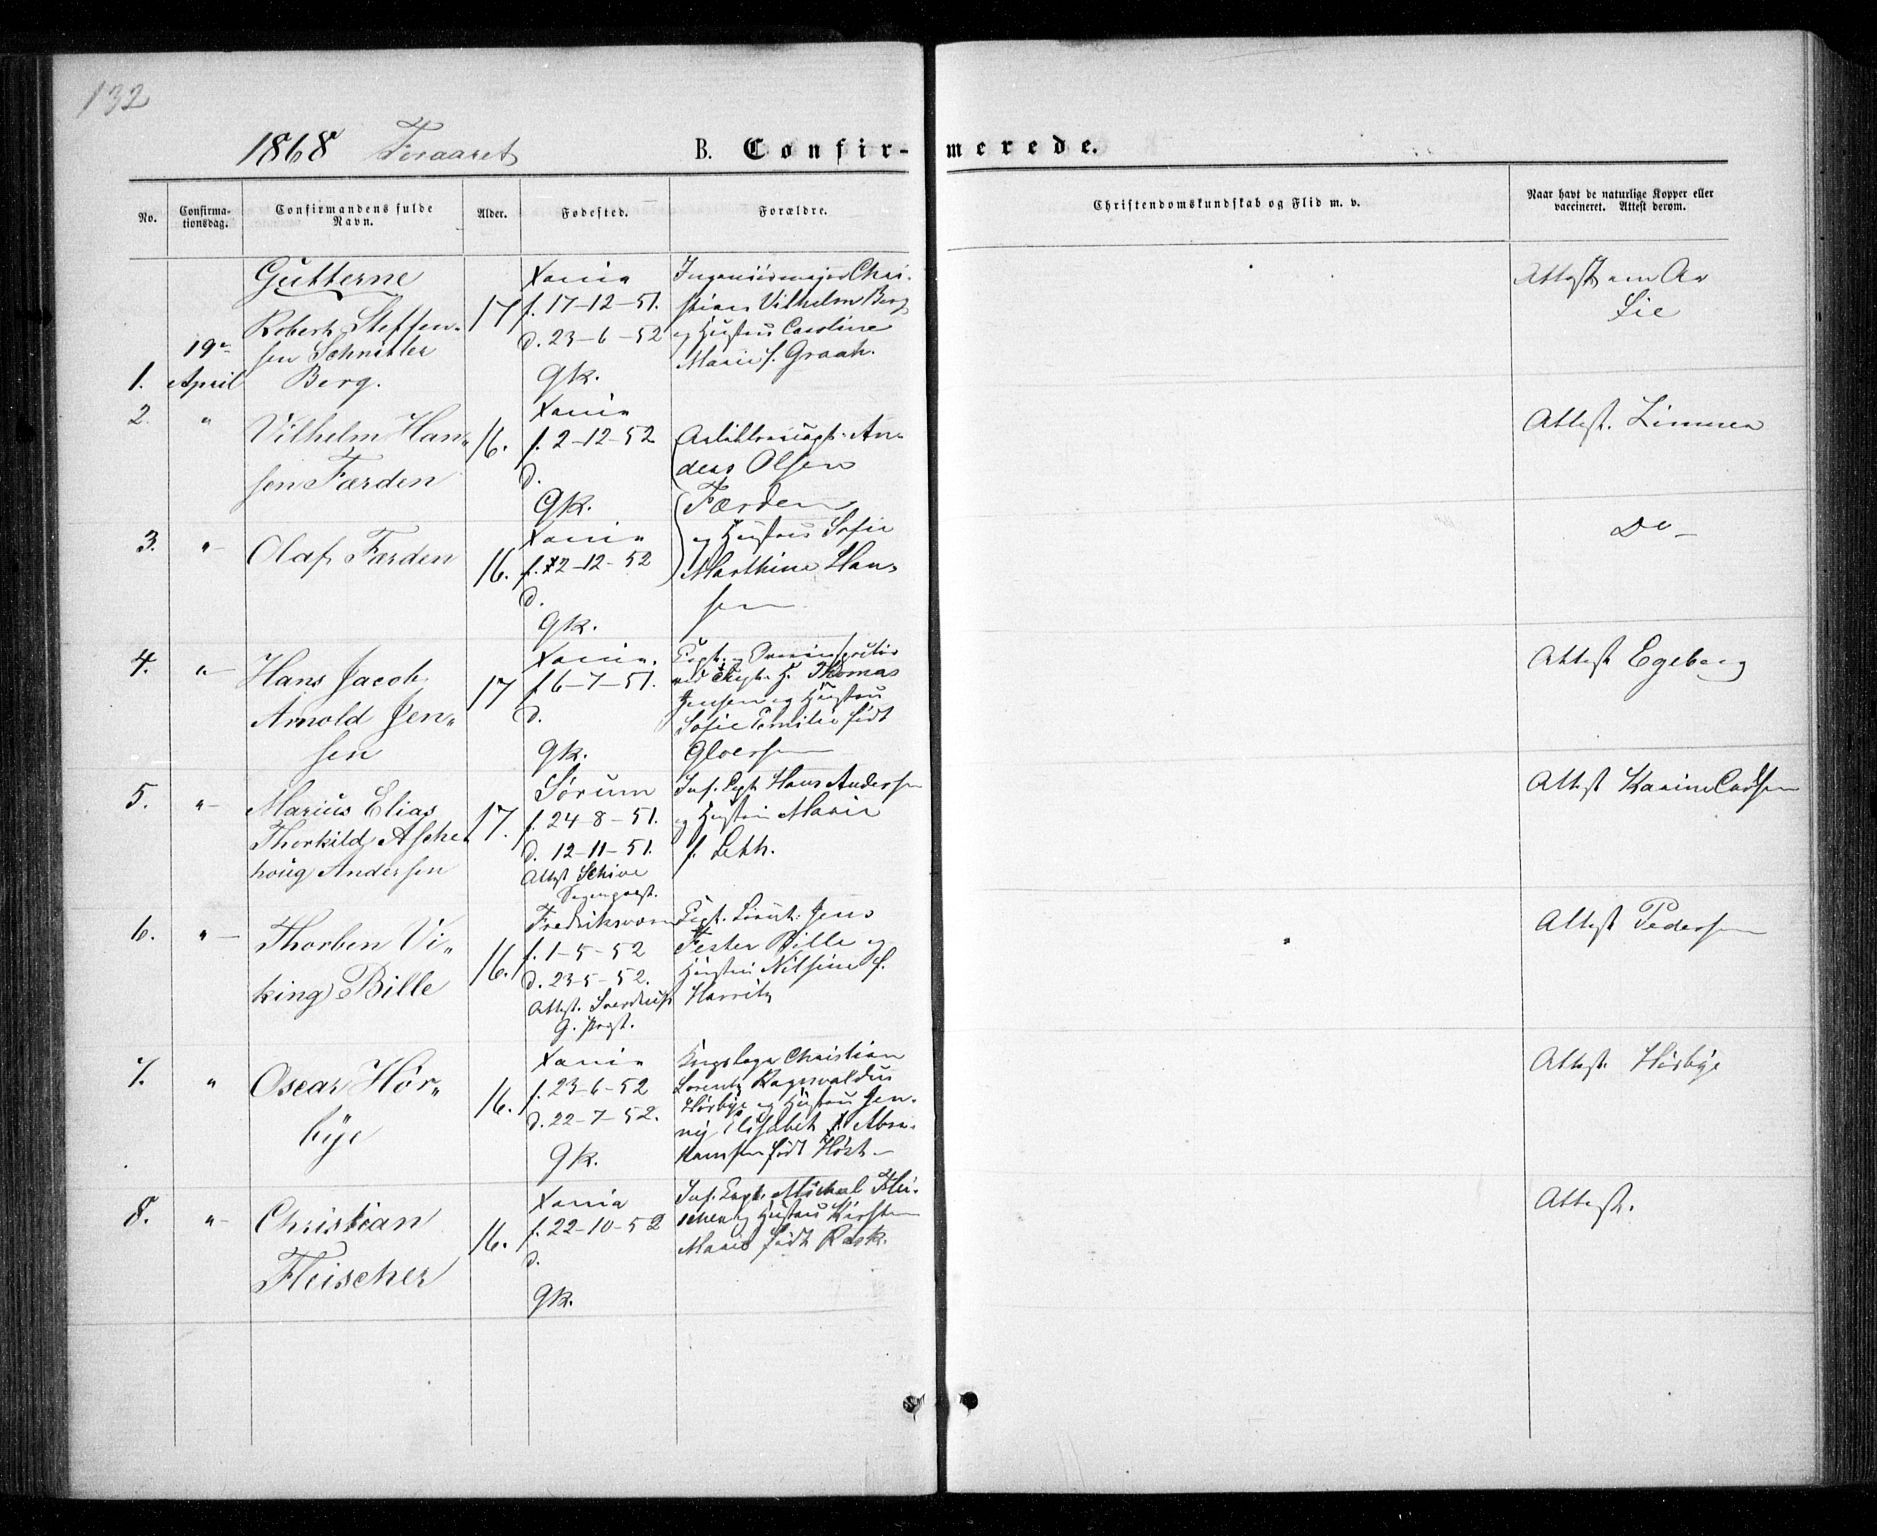 132
1868 Foraaret
B. Confirmerede.
No.
Confirmationsdag.
Confirmandens fulde Navn.
Alder.
Fødested.
Forældre.
Christendomskundskab og Flid m. v.
Naar havt de naturlige Kopper eller vaccineret. Attest derom.
Gutterne
1.
19de April
Robert Steffen-
sen Schnitler
Berg.
17
Xania
f. 17-12-51.
d. 23-6-52
gk.
Ingeniörmajor Chri-
stian Vilhelm Berg
og Hustru Caroline
Marie f. Graah.
Attest
Lie
2.
"
Vilhelm Han-
sen Færden
16.
Xania
f. 2-12-52
d.
gk.
An-
ders Olsen
Færden
og Hustru Sofie
Marthine Han-
sen
Attest.
3.
"
Olaf Færden
16.
Xania
f. 12-12-52
d.
gk.
Do
4.
"
Hans Jacob
Arnold Jen-
sen
17
Xania.
f. 6-7-51.
d.
gk.
Thomas
Jensen og Hustru
Sofie Emilie født
Gloersen
Attest Egeberg
5.
"
Marius Elias
Thorkild Asche-
houg Andersen
17.
Sørum
f. 24-8-51.
d. 12-11-51.
Attest Schive
Sognepræst.
Hans Andersen
og Hustru Marie
f. Leth.
Attest Karine
6.
"
Thorben Vi-
king Bille
16.
Fredriksværn
f. 1-5-52
d. 23-5-52.
Attest. Sverdrup
Jens
Bille og
Hustru Nilsine f.
Attest Pedersen
7.
"
Oscar Hör-
bye
16.
Xania
f. 23-6-52
d. 22-7-52.
gk.
Christian
Lorentz Ragnvaldus
Hörbye og Hustru Jen-
ny Elisabet Abra-
hamsen født Høst
Attest. Hörbye
8.
"
Christian
Fleischer
16.
Xania
f. 22-10-52
d.
gk.
Michael Flei-
scher og Hustru Kirsten
Marie født Rask.
Attest.